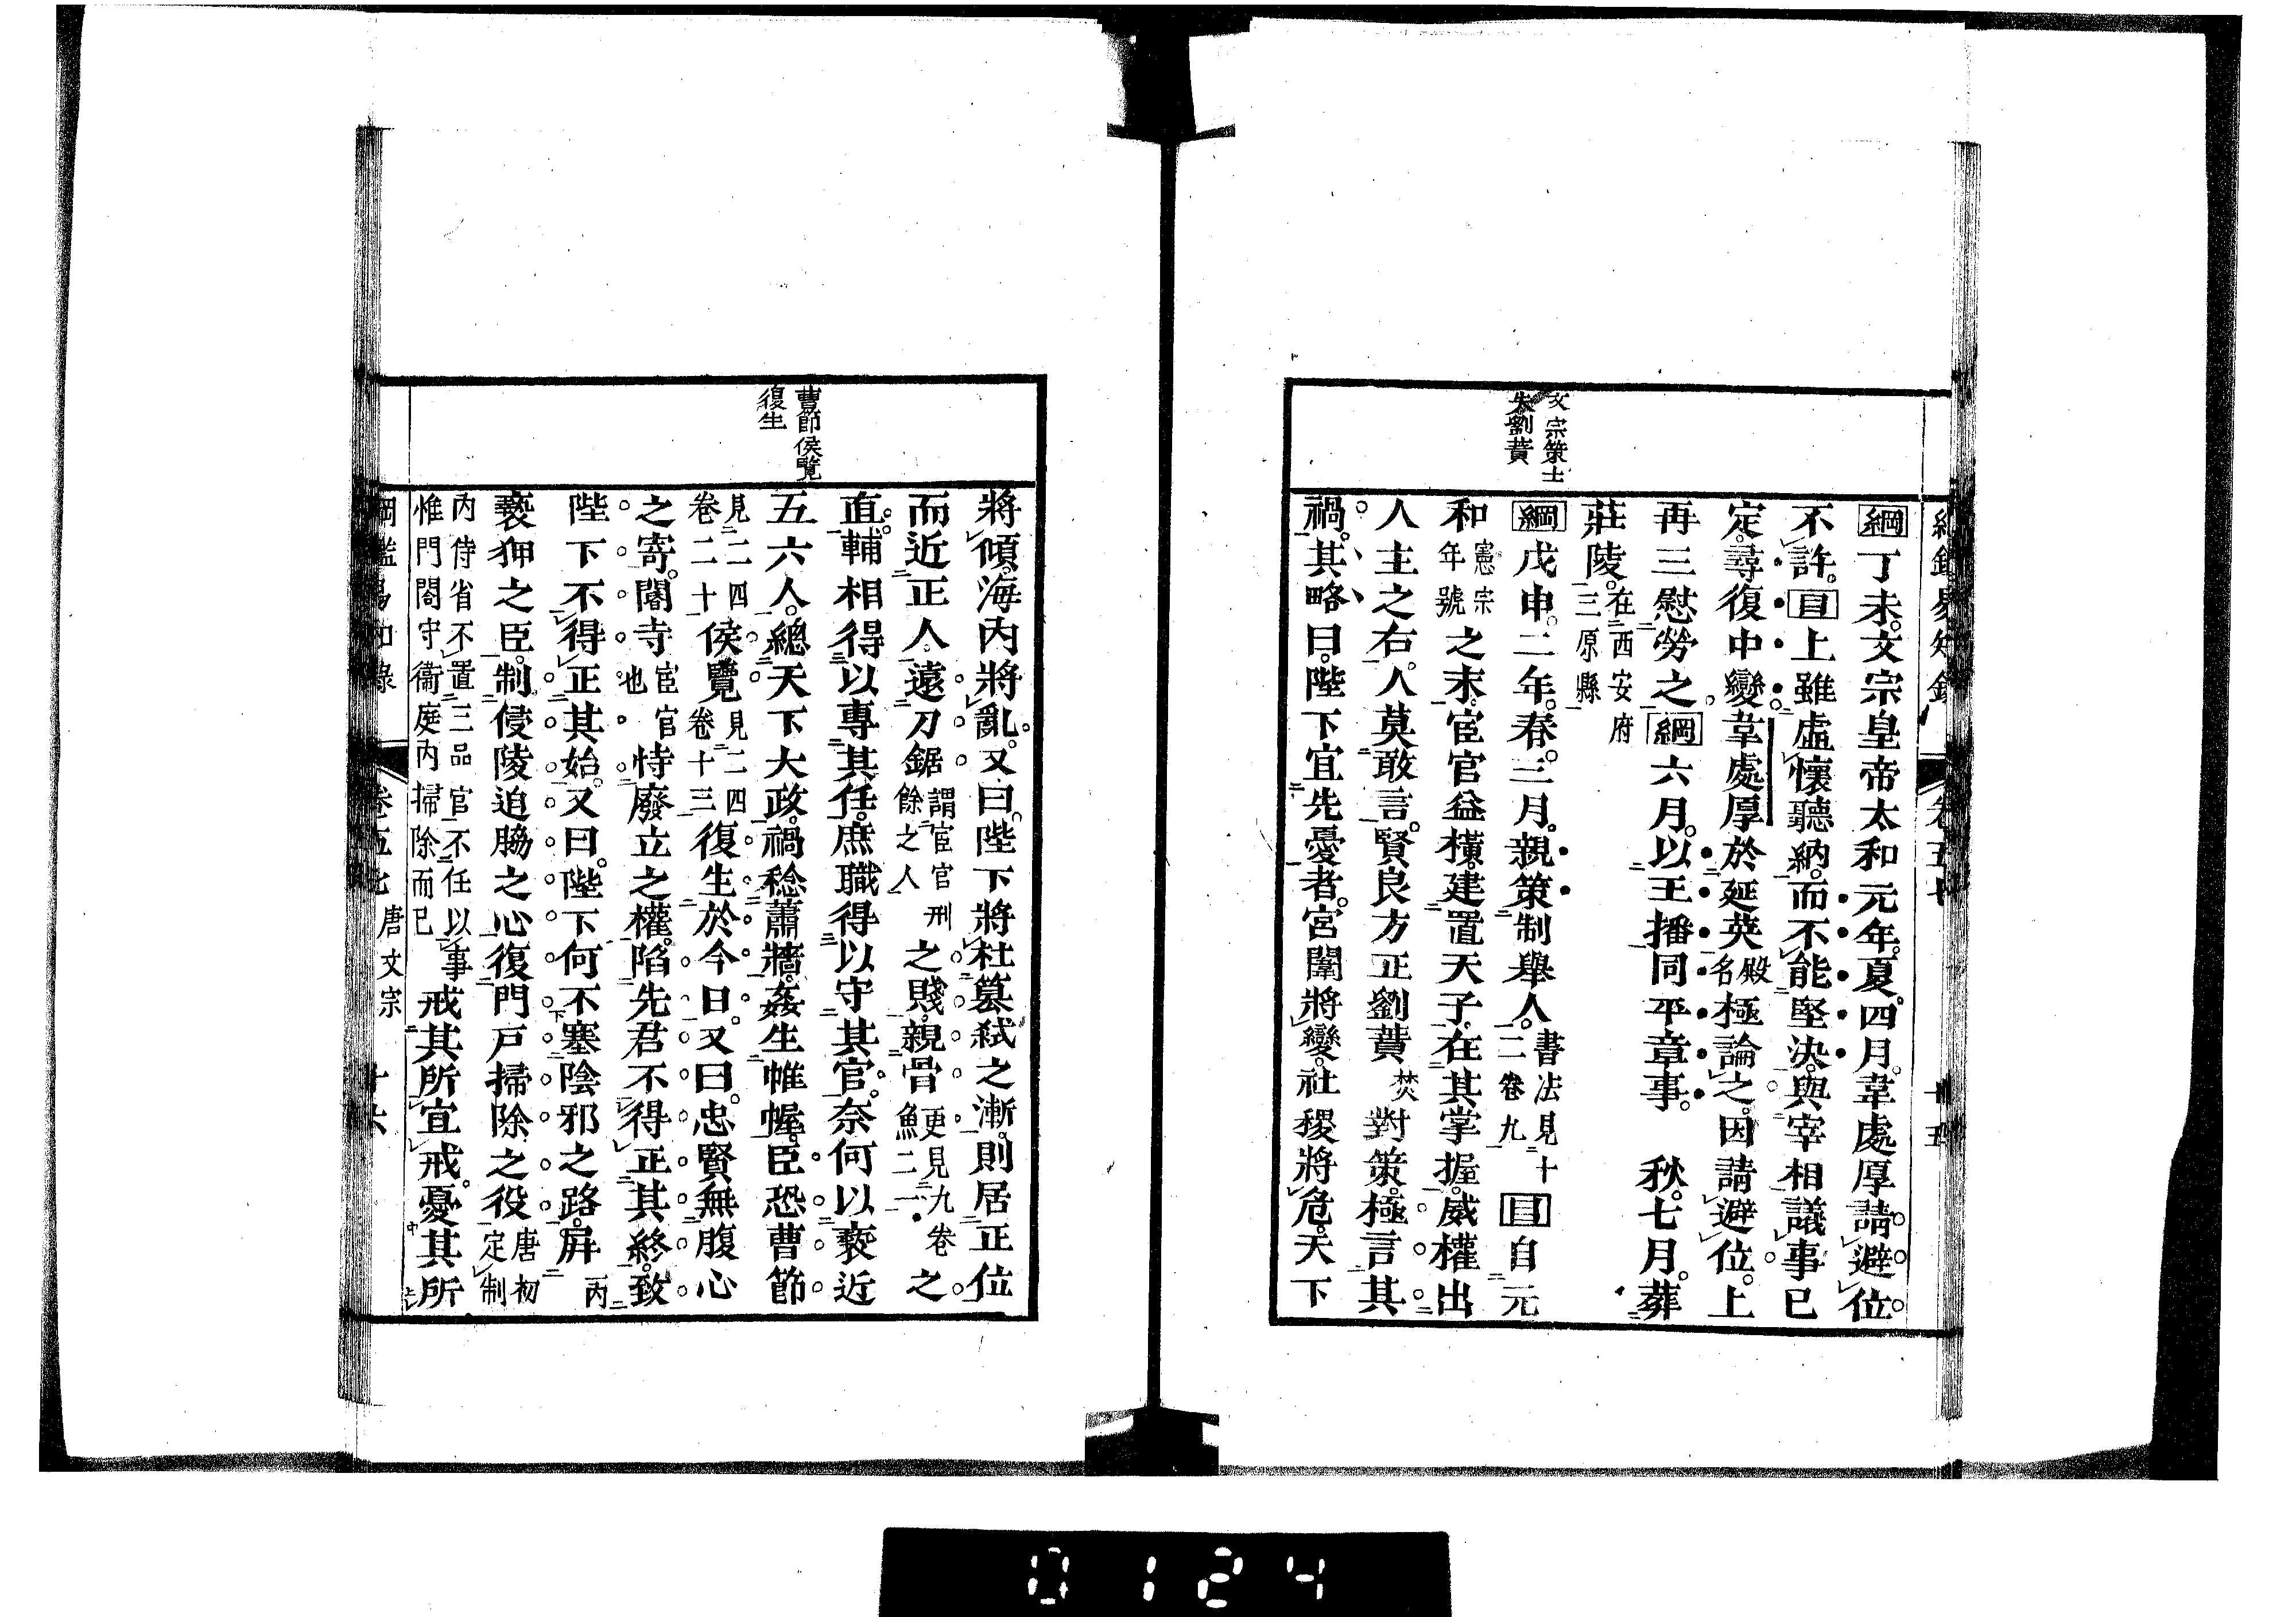 文宗策士
失劉蕡
綱丁未。文宗皇帝太和元年。夏。四月。韋處厚請避位。
不許。目上雖虛懷聽納。而不能堅決。與宰相議事已
定。尋復中變。韋處厚於延英殿名極論之。因請避位。上
再三慰勞之綱六月。以王播同平章事。 秋。七月。葬
莊陵。在西安府三原縣
綱戊申。二年。春。三月。親策制舉人。書法見十二卷九目自元
和憲宗年號之末。宦官益橫。建置天子。在其掌握。威權出
人主之右。人莫敢言。賢良方正劉蕡焚對策。極言其
禍。其略曰。陛下宜先憂者。宮闈將變。社稷將危。天下
曹節侯覽
復生
將傾。海內將亂。又曰。陛下將杜篡弒之漸。則居正位
而近正人。遠刀鋸謂宦官刑餘之人之賤。親骨更見九卷魚二一之
直。輔相得以專其任。庶職得以守其官。奈何以褻近
五六人。總天下大政。禍稔蕭牆。姦生帷幄。臣恐曹節
見二四卷二十侯覽見二四卷十三復生於今日。又曰。忠賢無腹心
之寄。閽寺宦官也恃廢立之權。陷先君不得正其終。致
陛下不得正其始。又曰。陛下何不塞陰邪之路。屏丙
褻狎之臣。制侵陵迫脇之心。復門戶掃除之役唐初定制
內侍省不置三品官不任以事惟門閤守衞庭內掃除而已戒其所宜戒。憂其所
綱鑑易知錄 卷五七 唐文宗 十六
0124